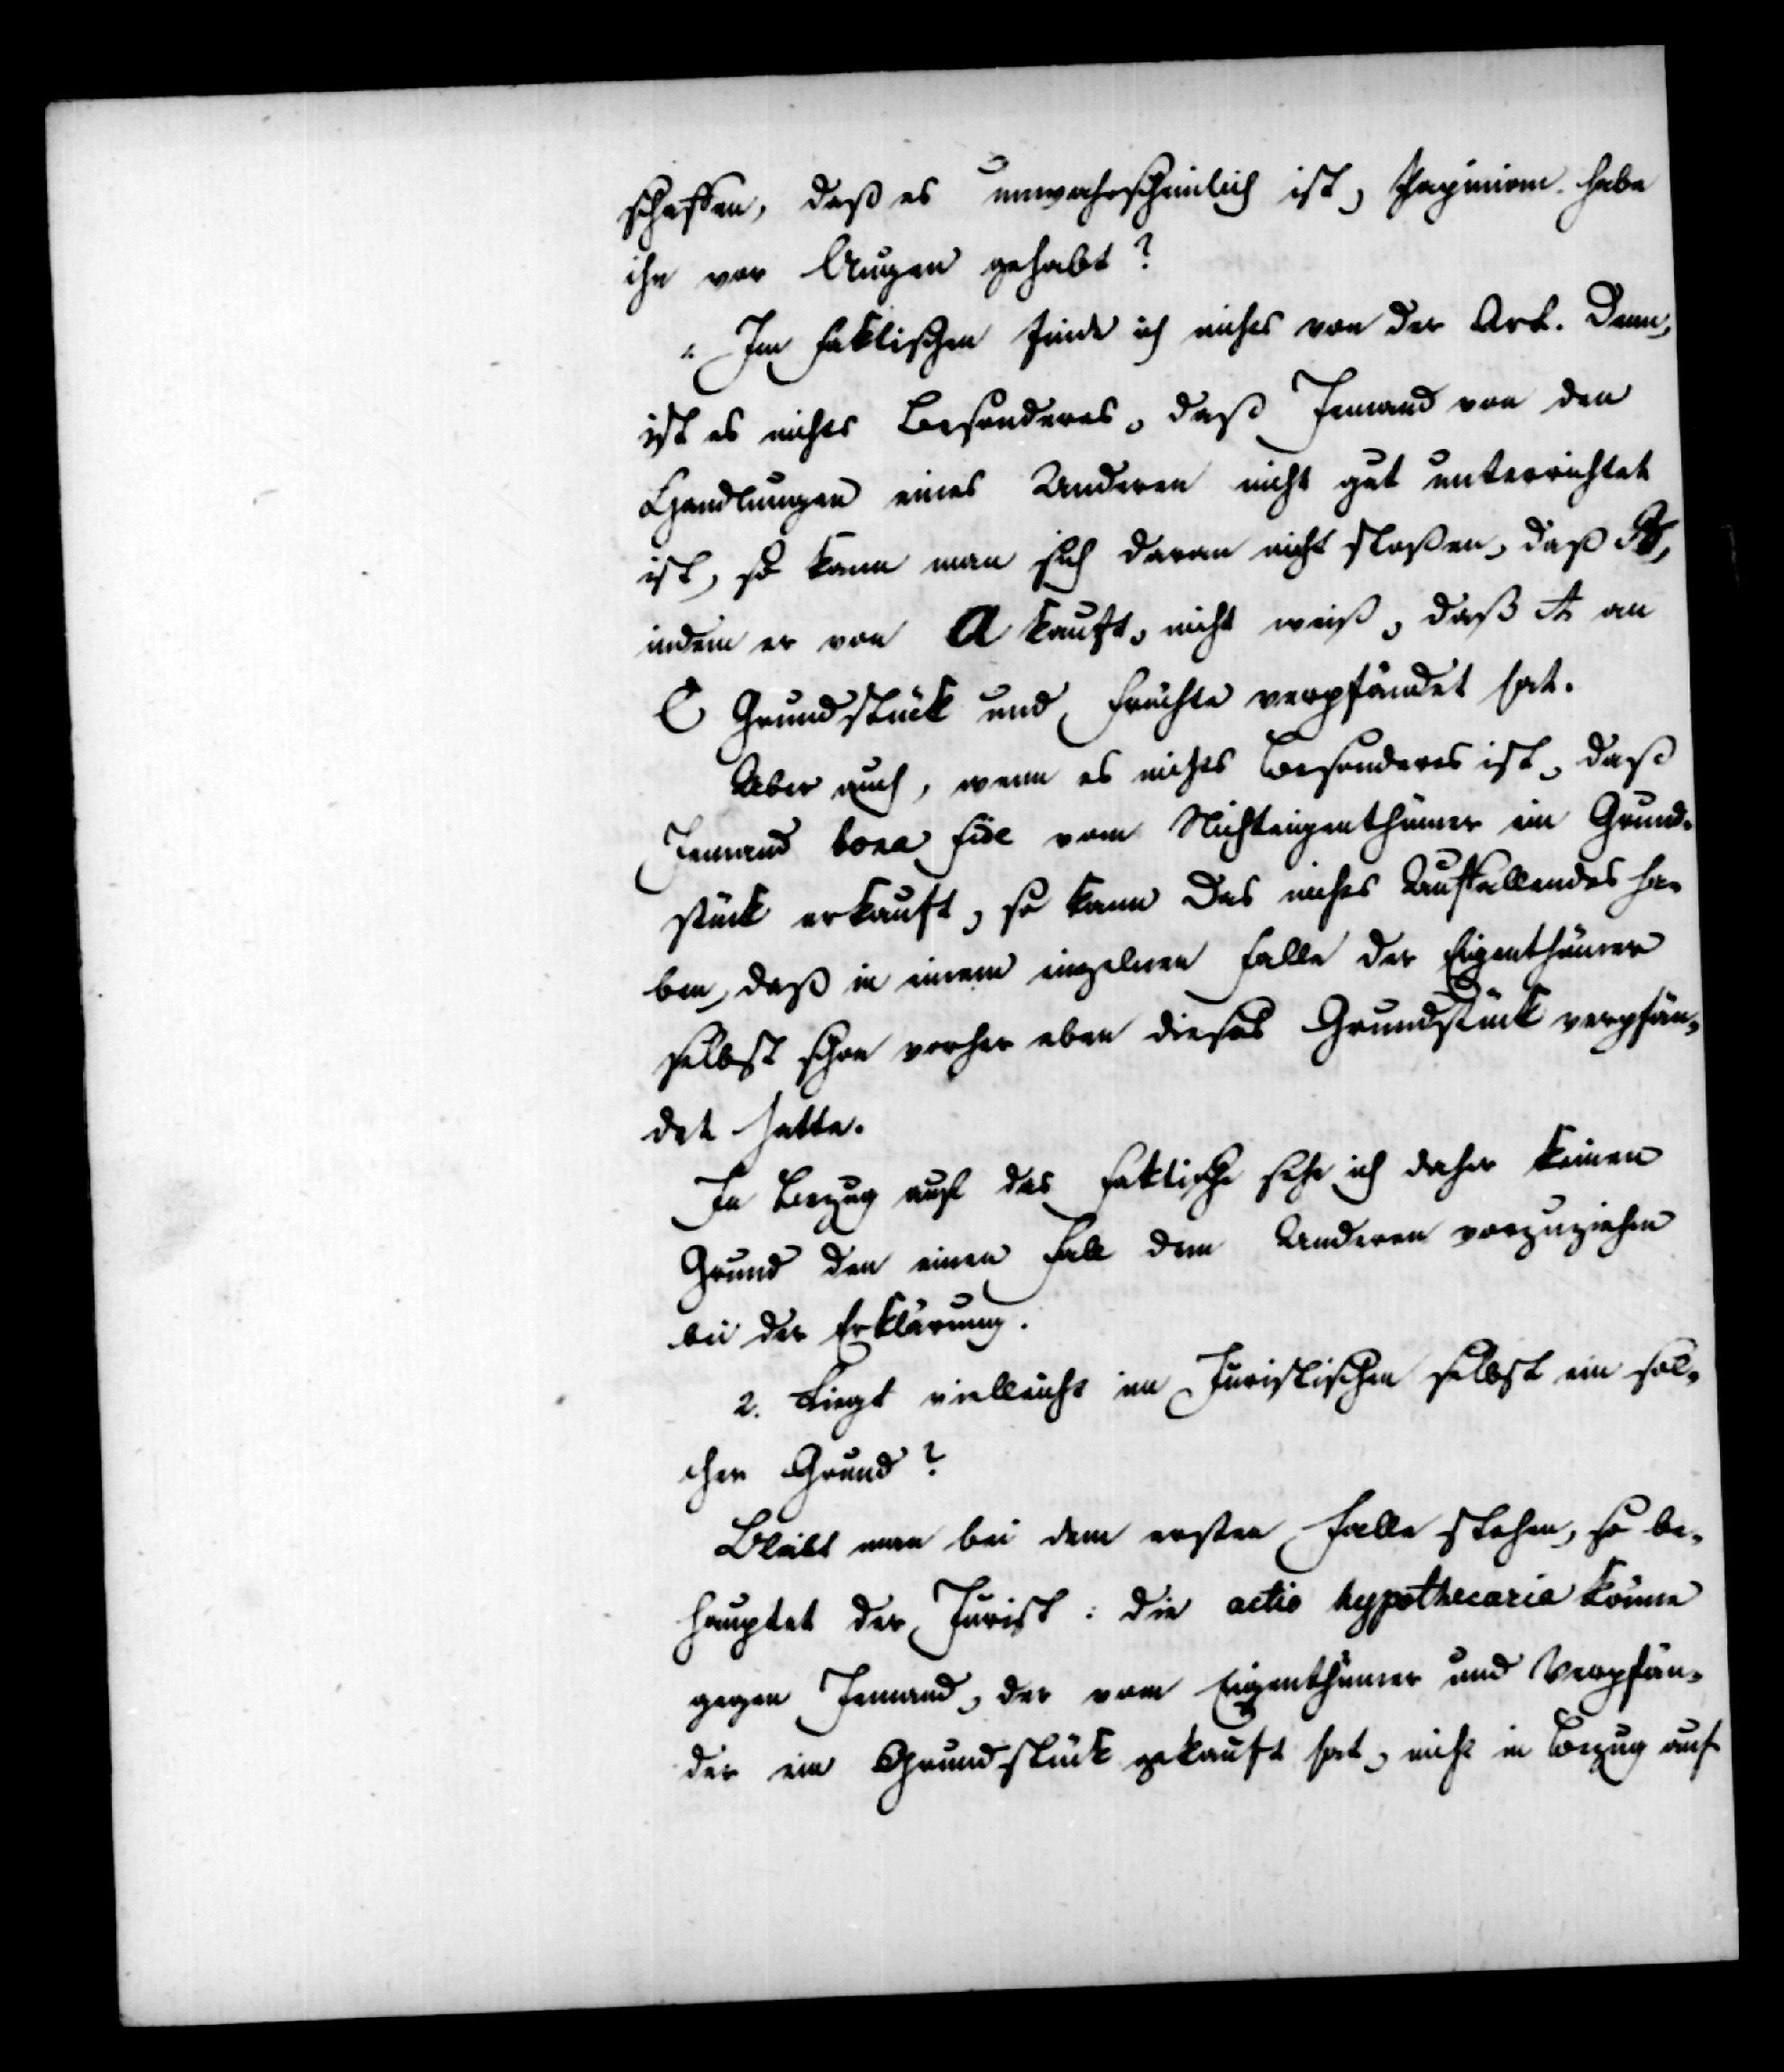 schaffen, daß es unwahrscheinlich ist, Papinian habe
ihn vor Augen gehabt?
1. Im Faktischen finde ich nichts von der Art. Denn,
ist es nichts Besonderes, daß Jemand von den
Handlungen eines Anderen nicht gut unterrichtet
ist, so kann man sich daran nicht stoßen, daß B,
indem er von A kauft, nicht weiß, daß A an
C Grundstück und Früchte verpfändet hat.
Aber auch, wenn es nichts Besonderes ist, daß
Jemand bona fide vom Nichteigenthümer ein Grund-
stück erkauft, so kann das nichts Auffallendes ha-
ben, daß in einem einzelnen Falle der Eigenthümer
selbst schon vorher eben dieses Grundstück verpfän-
det hatte.
In Bezug auf das Faktische sehe ich daher keinen
Grund den einen Fall dem Anderen vorzuziehen
bei der Erklärung.
2. Liegt vielleicht im Juristischen selbst ein sol-
cher Grund?
Bleibt man bei dem ersten Falle stehen, so be-
hauptet der Jurist: die actio hypothecaria könne
gegen Jemand, der vom Eigenthümer und Verpfän-
der ein Grundstück gekauft hat, nicht in Bezug auf